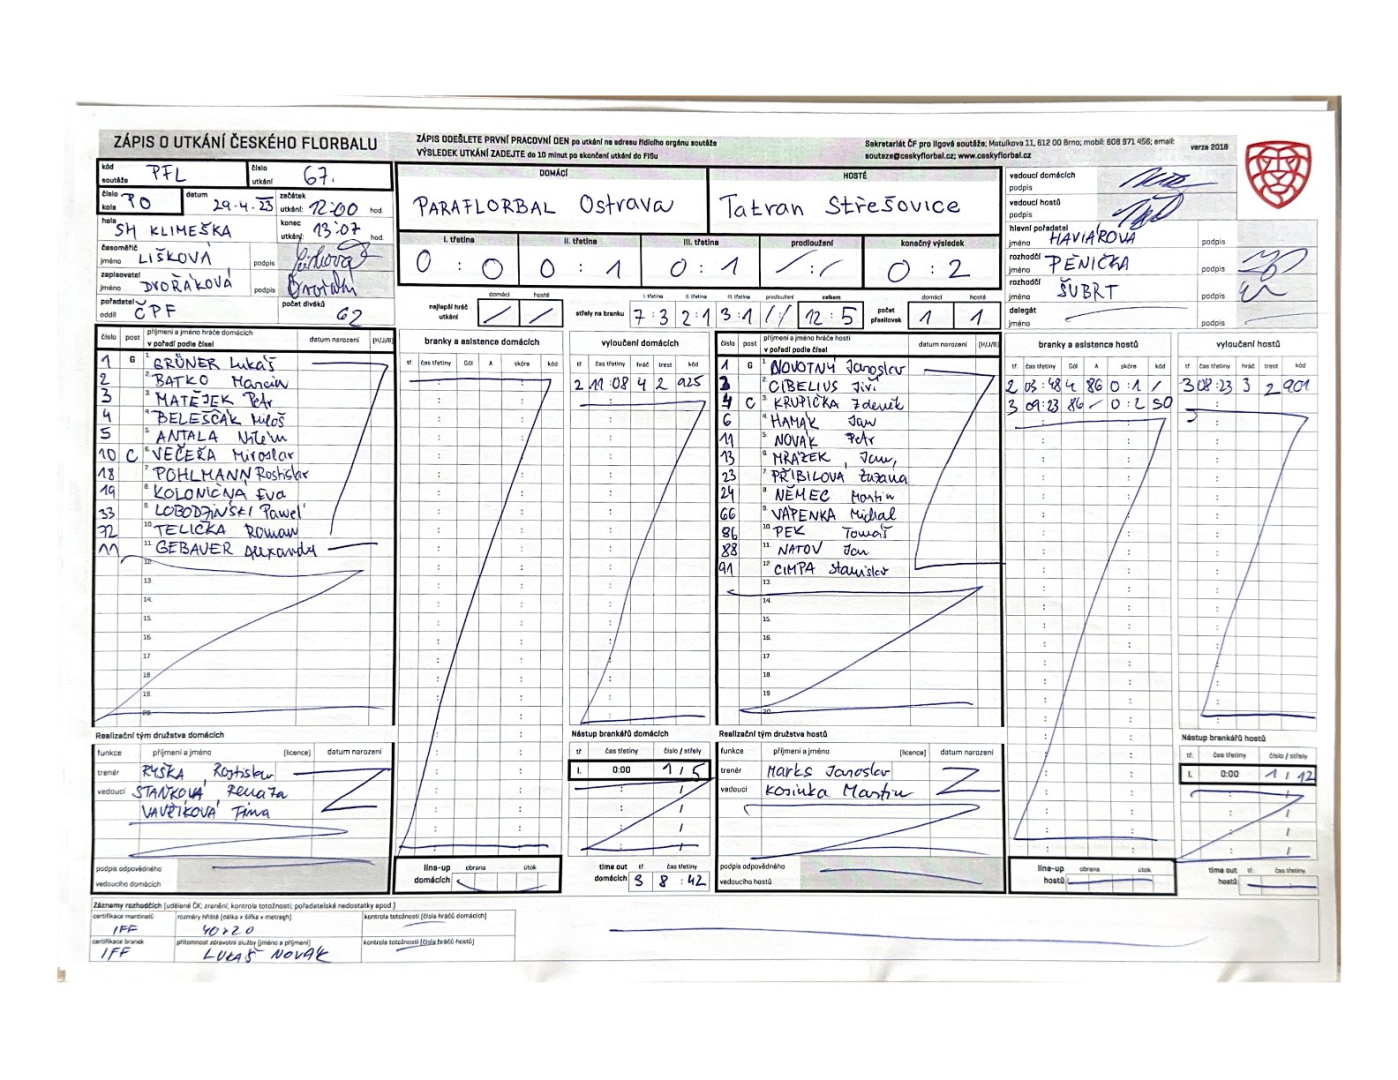 ZÁPIS O UTKÁNÍ ČESKÉHO FLORBALU
ZÁPIS ODEŠLETE PRVNÍ PRACOVNÍ DEN po utkání na adresu řídícího orgánu soutěže
VÝSLEDEK UTKÁNÍ ZADEJTE do 10 minut po skončení utkání do FISu
Sekretariát ČF pro ligové soutěže; Matulkova 11, 612 00 Brno; mobil: 608 971 456; email:
soutaze@ceskyflorbal.cz; www.ceskyflorbal.cz
verze 2018
kód soutěže PFL
číslo utkání 67.
číslo kola PO
datum 29.4.23
začátek utkání: 12:00 hod.
hala SH KLIMEŠKA
konec utkání: 13:07 hod.
časoměřič jméno LIŠKOVÁ podpis
zapisovatel jméno DVOŘÁKOVÁ podpis
pořadatel oddíl ČPF
počet diváků 62
DOMÁCÍ
PARAFLORBAL Ostrava
HOSTÉ
Tatran Střešovice
I. třetina II. třetina III. třetina prodloužení konečný výsledek
0 : 0 0 : 1 0 : 1 / : / 0 : 2
nejlepší hráč utkání domácí hosté
/ /
střely na branku I. třetina II. třetina III. třetina prodloužení celkem
7 : 3 2 : 1 3 : 1 / : / 12 : 5
počet přesilovek domácí hosté
1 1
vedoucí domácích podpis
vedoucí hostů podpis
hlavní pořadatel jméno HAVIAROVÁ podpis
rozhodčí jméno PĚNIČKA podpis
rozhodčí jméno ŠUBRT podpis
delegát jméno podpis
číslo post příjmení a jméno hráče domácích v pořadí podle čísel datum narození (H/J/B)
1 G 1. GRÜNER Lukáš
2 2. BATKO Marcin
3 3. MATĚJEK Petr
4 4. BELEŠČÁK Miloš
5 5. ANTALA
10 C 6. VEČEŘA Miroslav
18 7. POHLMANN Rostislav
19 8. KOLONIČNÁ Eva
33 9. LOBODZIŃSKI Paweł
72 10. TELIČKA Roman
11 11. GEBAUER Alexandr
12.
13.
14.
15.
16.
17.
18.
19.
20.
branky a asistence domácích
tř. čas třetiny Gól A skóre kód
vyloučení domácích
tř. čas třetiny hráč trest kód
2 11:08 4 2 925
číslo post příjmení a jméno hráče hostí v pořadí podle čísel datum narození (H/J/B)
1 G 1. NOVOTNÝ Jaroslav
3 2. CIBELIUS Jiří
4 C 3. KRUPIČKA Zdeněk
6 4. HAMÁK Jan
11 5. NOVÁK Petr
13 6. MRÁZEK Jan
23 7. PŘIBILOVÁ Zuzana
24 8. NĚMEC Martin
66 9. VÁPENKA Michal
86 10. PEK Tomáš
88 11. NATOV Jan
91 12. CIMPA Stanislav
13.
14.
15.
16.
17.
18.
19.
20.
branky a asistence hostů
tř. čas třetiny Gól A skóre kód
2 03:48 4 86 0:1 /
3 09:23 86 – 0:2 50
vyloučení hostů
tř. čas třetiny hráč trest kód
3 08:23 3 2 901
Realizační tým družstva domácích
funkce příjmení a jméno (licence) datum narození
trenér RYŠKA Rostislav
vedoucí STAŇKOVÁ Renata
podpis odpovědného vedoucího domácích
Nástup brankářů domácích
tř. čas třetiny číslo / střely
I. 0:00 1 / 5
line-up domácích obrana útok
time out domácích tř. čas třetiny
3 8 : 42
Realizační tým družstva hostů
funkce příjmení a jméno (licence) datum narození
trenér Marks Jaroslav
vedoucí Kosinka Martin
podpis odpovědného vedoucího hostů
Nástup brankářů hostů
tř. čas třetiny číslo / střely
I. 0:00 1 / 12
line-up hostů obrana útok
time out hostů tř. čas třetiny
Záznamy rozhodčích (udělené ČK, zranění, kontrola totožnosti, pořadatelské nedostatky apod.)
certifikace mantinelů IFF
rozměry hřiště (délka x šířka v metrech) 40x20
kontrola totožnosti (čísla hráčů domácích)
certifikace branek IFF
přítomnost zdravotní služby (jméno a příjmení) LUKÁŠ NOVÁK
kontrola totožnosti (čísla hráčů hostů)